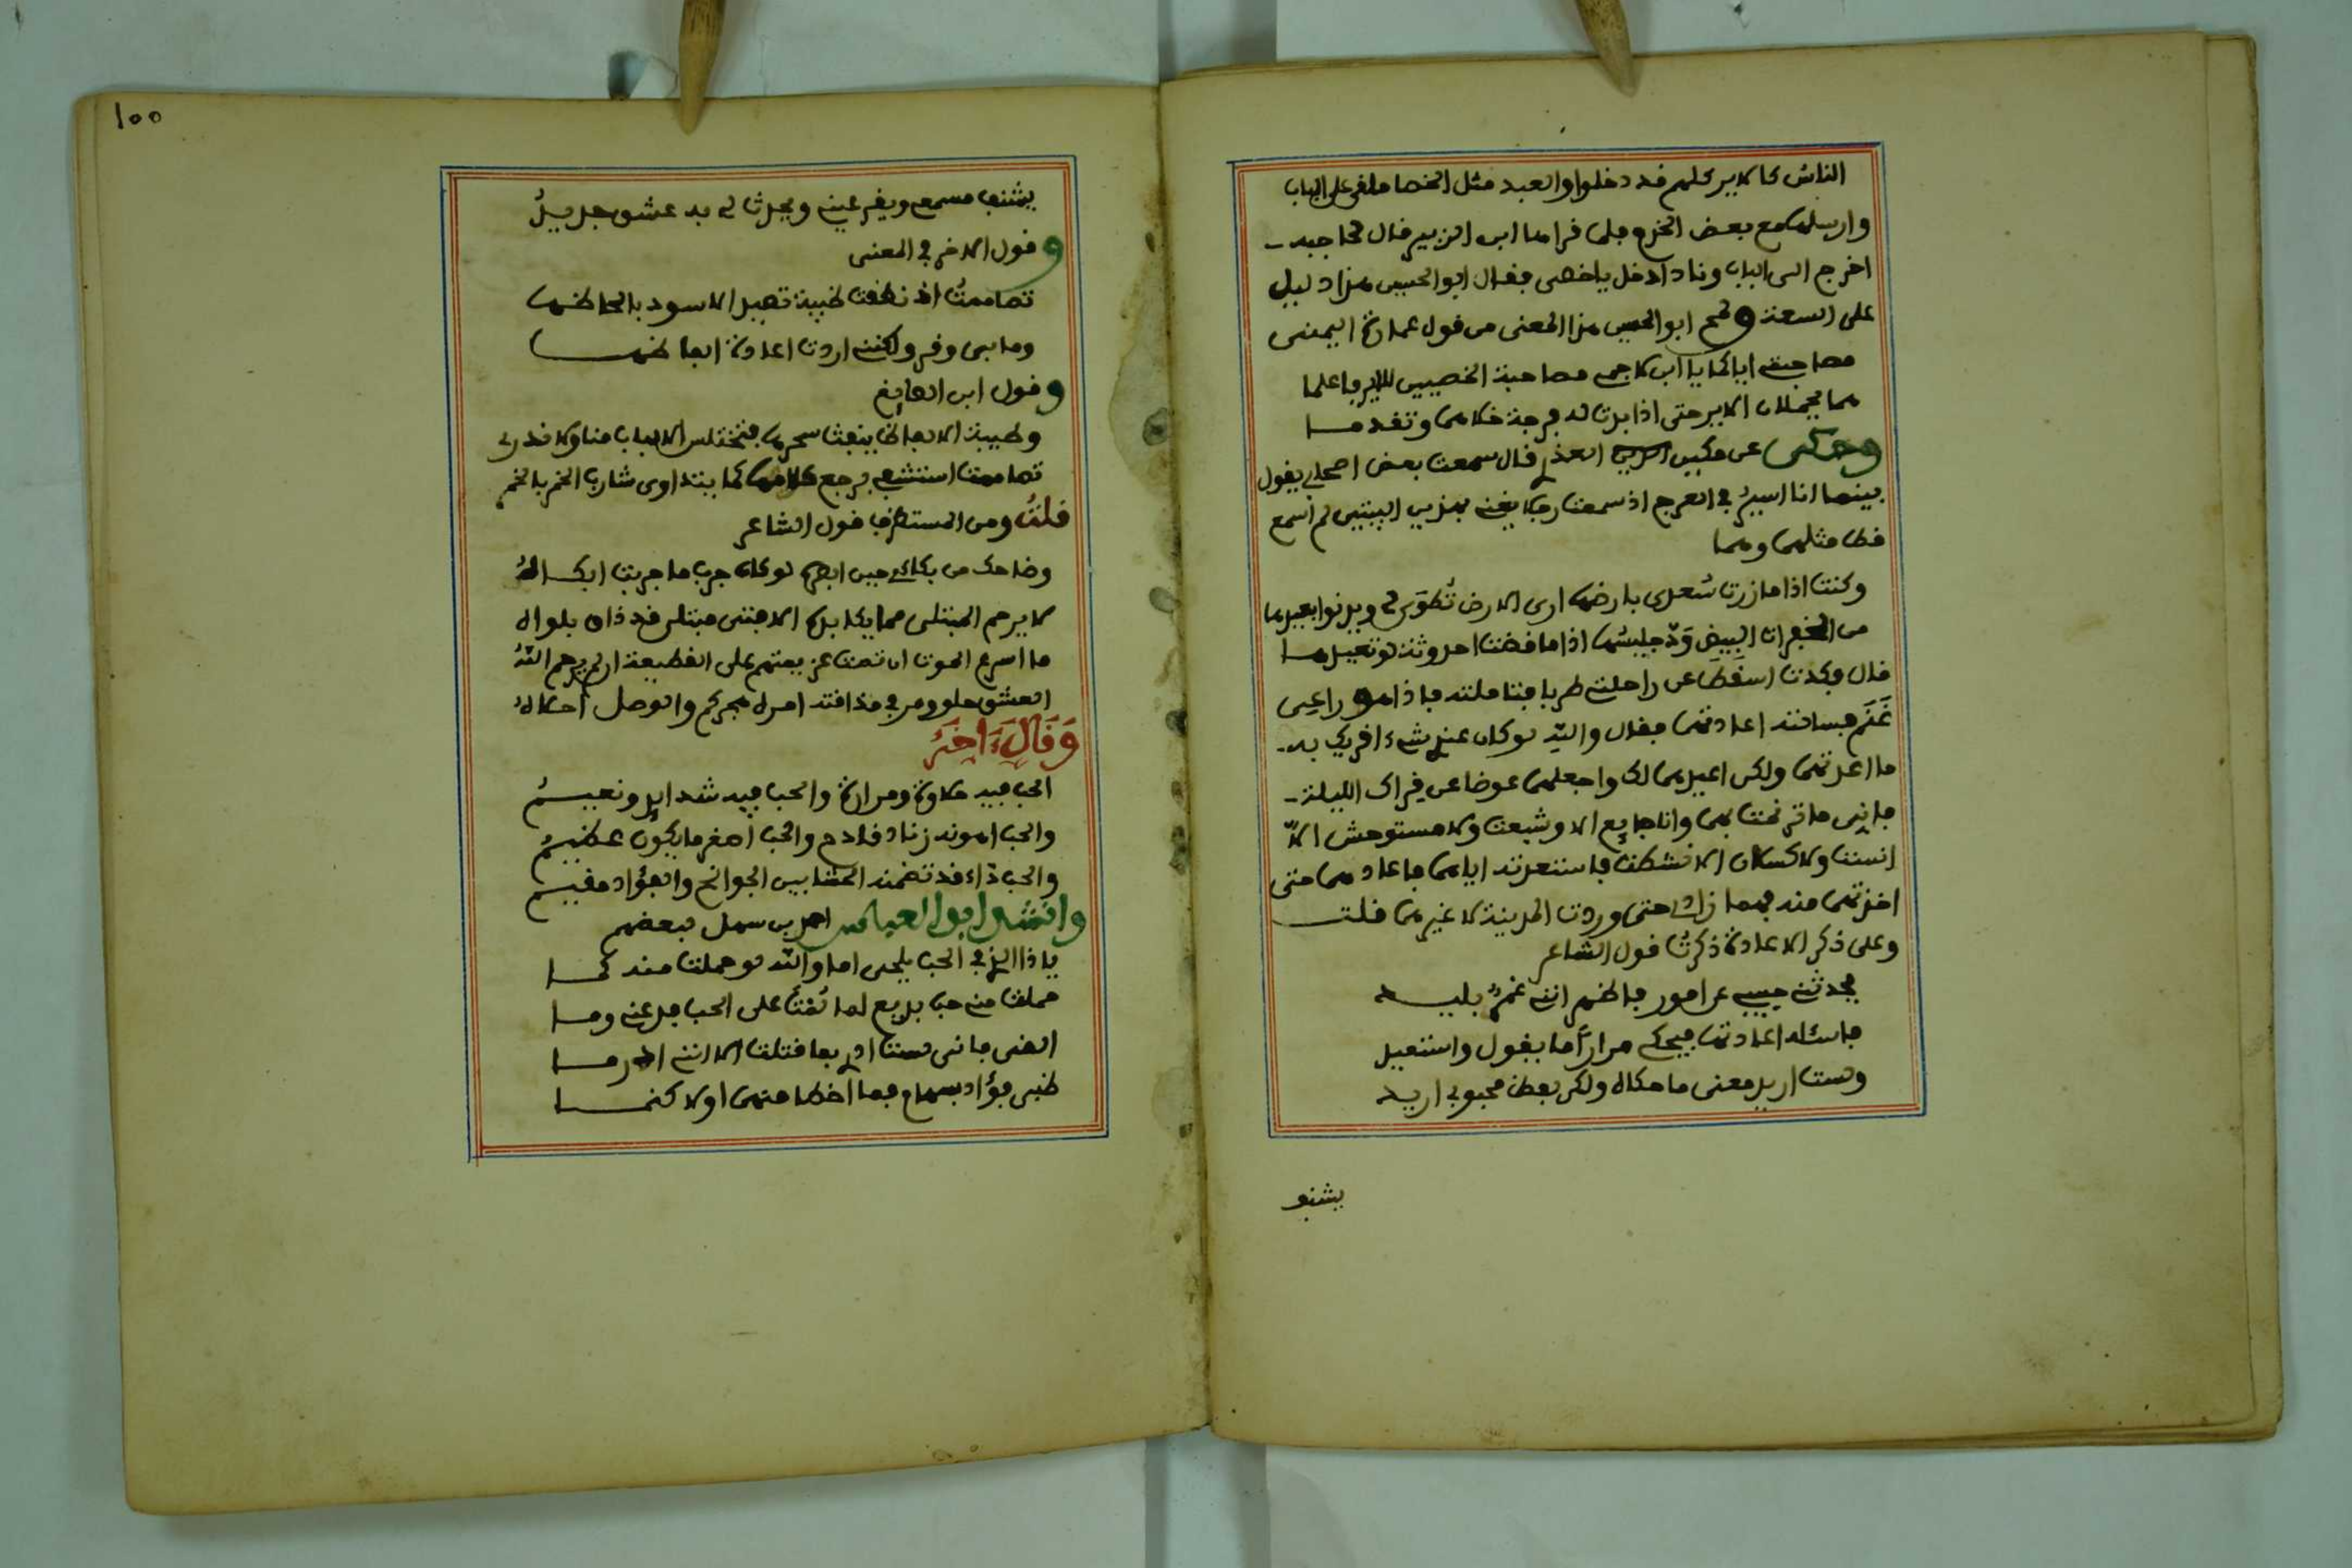 الناس كالاير كلهم قد دخلوا والعبد مثل الخصا ملقى على الباب
وارسلها مع بعض الخدم فلما قراها ابن الزبير قال لحاجبه
اخرج الى الباب وناد ادخل ياخصى فقال ابو الحسين هذا دليل
على السعة و ابو الحسين هذا المعنى من قول عمارة اليمنى
مصاحبتى اياك يا ابن مصاحبة الخصيين للاير فاعلما
هما يحملان الاير حتى اذا بدت له فرجة خلاهما وتقدما
وحكى عن العذرى قال سمعت بعض اصحابى يقول
بينما انا اسير فى العرج اذ سمعت رجلا يغنى بهذين البيتين لم اسمع
قط مثلهما وهما
وكنت اذا ما زرت سعدى بارضها ارى الارض تطوى لى ويدنوا بعيدها
من الخفرات البيض ودّ جليسها اذا ما قضت احدوثة لو تعيدها
قال فكدت اسقط عن راحلتى طربا فتاملته فاذا هو راعى
غنم فسالته اعادتهما فقال والله لو كان عندى شىء اقريك به
ما اعدتهما ولكن اعيدهما لك واجعلهما عوضا عن قراك الليلة
فانى ما ترنمت بهما وانا جايع الا وشبعت ولا مستوحش الا
انست ولا كسلان الا نشطت فاستعدته اياهما فاعادهما حتى
اخذتهما منه فما زادى حتى وردت المدينة لا غيرهما قلت
وعلى ذكر الاعادة ذكرت قول الشاعر
يحدثنى حبيبى عن امور فاظهر اننى غمر بليد
فاسئله اعادتها فيحكى مرارا ما يقول واستعيد
ولست اريد معنى ما حكاه ولكن لفظ محبوبى اريد
يشنف
١٥٥
يشنف مسمعى ويقر عينى ويحدث لى به عشق جديد
وقول الاخر فى المعنى
تصاممت اذ نطقت ظبية تصيد الاسود بالحاظها
وما بى وقر ولكننى اردت اعادة الفاظها
وقول ابن الصايغ
وطيبة الالفاظ ينفث سحرها فتختلس الالباب منا ولا ندرى
تصاممت استشفى برجع كلامها كما يتداوى شارب الخمر بالخمر
قلت ومن المستظرف قول الشاعر
وضاحك من بكائى حين ابصره لو كان جرب ما جربت ابكاه
لا يرحم المبتلى مما يكابده الا فتى مبتلى قد ذاق بلواه
ما اسرع الموت ان تمت عزيمتهم على القطيعة ان لم يرحم الله
العشق حلو ومر فى مذاقته امره هجركم والوصل احلاه
وقال ءاخر
الحب فيه حلاوة ومرارة والحب فيه شدايد ونعيم
والحب اهونه زناد قادح والحب اصغر ما يكون عظيم
والحب داء قد تضمنه الحشا بين الجوانح والفؤاد مقيم
وانشد ابو العباس احمد بن سهل لبعضهم
ياذا الذى فى الحب يلحى اما والله لو حملت منه كما
حملت من حب بديع لما لمت على الحب فدعنى وما
القى فانى لست ادرى بما قتلت الا اننى
ظبى فؤاد بسهام فما اخطا منها ولا كنما